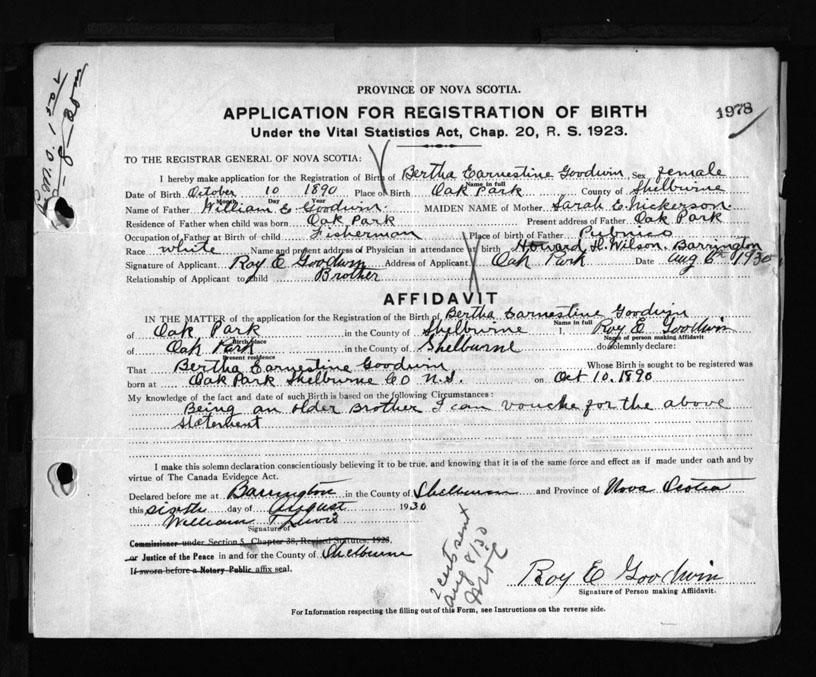 PROVINCE OF NOVA SCOTIA.
APPLICATION FOR REGISTRATION OF BIRTH
1978
Under the Vital Statistics Act, Chap. 20, R. S. 1923.
TO THE REGISTRAR GENERAL OF NOVA SCOTIA:
I hereby make application for the Registration of Birth of Bertha Earnestine Goodwin Sex female
Name in full
Date of Birth October 10 1890 Place of Birth Oak Park County of Shelburne
Month Day Year
Name of Father William E Goodwin. MAIDEN NAME of Mother Sarah E. Nickerson.
Residence of Father when child was born Oak Park Present address of Father Oak Park
Occupation of Father at Birth of child Fisherman Place of birth of Father Pubnico
Race white Name and present address of Physician in attendance at birth Howard H. Wilson. Barrington
Signature of Applicant Roy E Goodwin Address of Applicant Oak Park Date Aug 6th 1930
Relationship of Applicant to child Brother
AFFIDAVIT
IN THE MATTER of the application for the Registration of the Birth of Bertha Earnestine Goodwin
Name in full
of Oak Park in the County of Shelburne I, Roy E Goodwin
Birth place Name of person making Affidavit
of Oak Park in the County of Shelburne do solemnly declare:
Present residence
That Bertha Earnestine Goodwin Whose Birth is sought to be registered was
born at Oak Park Shelburne CO N.S. on Oct 10. 1890
My knowledge of the fact and date of such Birth is based on the following Circumstances:
Being an older Brother I can vouche for the above
statement
I make this solemn declaration conscientiously believing it to be true, and knowing that it is of the same force and effect as if made under oath and by
virtue of The Canada Evidence Act.
Declared before me at Barrington in the County of Shelburne and Province of Nova Scotia
this sixth day of August 1930
William
Signature of
Commissioner under Section 5, Chapter 38, Revised Statutes, 1923,
or Justice of the Peace in and for the County of Shelburne
If sworn before a Notary Public affix seal.
2 cent sent
Aug 8/30
Roy E Goodwin
Signature of Person making Affidavit.
For Information respecting the filling out of this Form, see Instructions on the reverse side.